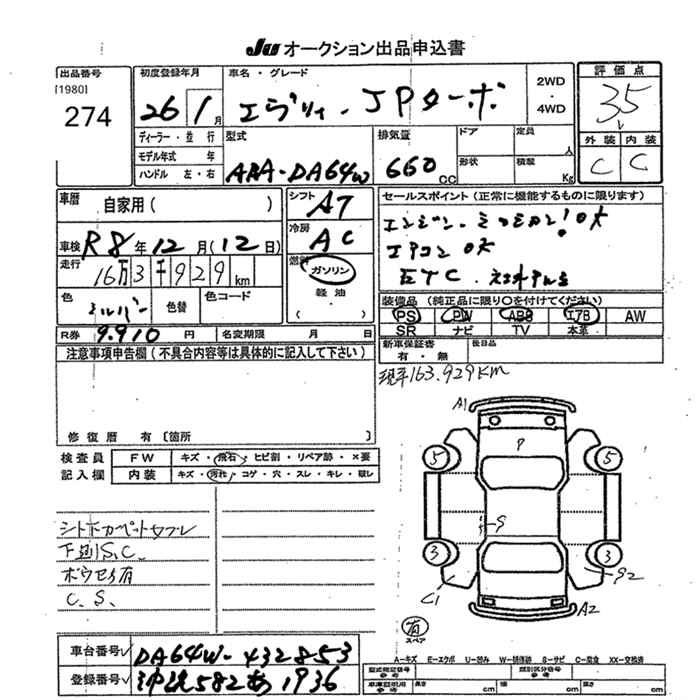 JU オークション出品申込書
出品番号
[1980]
274
初度登録年月
26 1月
車名・グレード
エブリィ・JPターボ
2WD
・
4WD
評価点
35
外装 内装
C C
ディーラー・並行
モデル年式 年
ハンドル 左・右
型式
ABA-DA64W
排気量
660 CC
ドア
定員 人
形状
積載 Kg
車歴
自家用( )
シフト
AT
セールスポイント(正常に機能するものに限ります)
エンジン・ミッション!OK
エアコン OK
ETC.
車検 R8年12月(12日)
冷房
AC
走行
16万3千929km
燃料
ガソリン
軽油・
( )
色
シルバー
色替
色コード
装備品(純正品に限り○を付けてください)
PS PW ABS エアB AW
SR ナビ TV 本革
R券 9.910円 名変期限 月 日
新車保証書
有・無
後日品
注意事項申告欄(不具合内容等は具体的に記入して下さい)
現車163.929KM
修復歴 有〔箇所 〕
検査員
記入欄
FW キズ・飛石・ヒビ割・リペア跡・×要
内装 キズ・汚れ・コゲ・穴・スレ・キレ・破レ
シト下カーペットサフレ
下廻りS.C.
ボウセイ有
C.S.
A1
P
5 5
S
3 3
C1
S2
A2
有
スペア
車台番号 DA64W-432853
登録番号 沖縄582あ1936
A-キズ E-エクボ U-凹み W-補修跡 S-サビ C-腐食 XX-交換済
型式指定番号
参考
類別区分番号
参考
車庫証明用
参考
cm cm cm